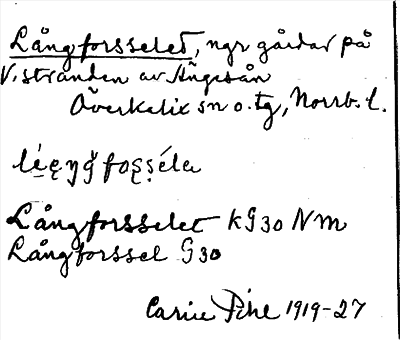 Långforsselet, ngr gårdar på
V. stranden av Ängesån
Överkalix sn o. tg, Norrb. l.
Långforsselet KG30 Nm
Långforssel G30
Carin Pihl 1919-27